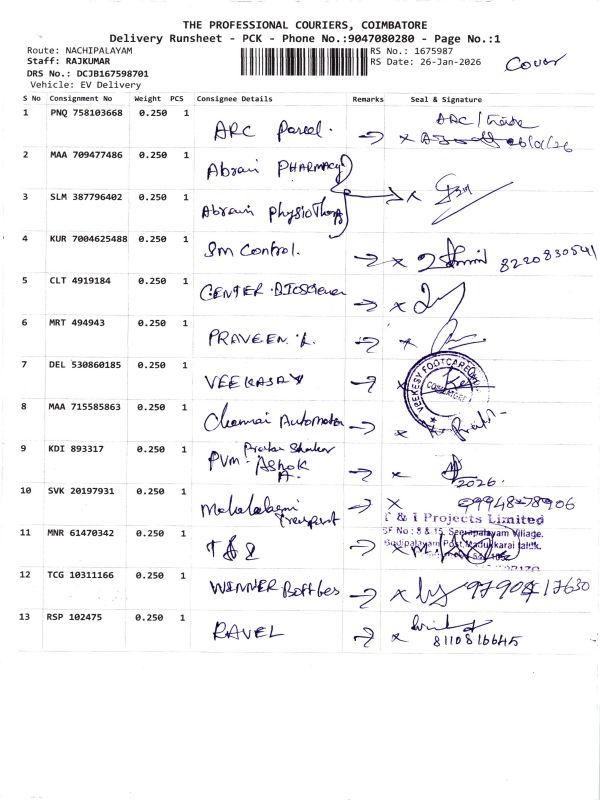 THE PROFESSIONAL COURIERS, COIMBATORE
Delivery Runsheet - PCK - Phone No.:9047080280 - Page No.:1
Route: NACHIPALAYAM
RS No.: 1675987
Staff: RAJKUMAR
RS Date: 26-Jan-2026
Cover
DRS No.: DCJB167598701
Vehicle: EV Delivery
S No Consignment No Weight PCS Consignee Details Remarks Seal & Signature
1 PNQ 758103668 0.250 1 ARC Parcel.
2 MAA 709477486 0.250 1 Abrani PHARMACY
3 SLM 387796402 0.250 1 Abrani PhysioTherapy
4 KUR 7004625488 0.250 1 Sm Control. 8220830541
5 CLT 4919184 0.250 1 CENTER
6 MRT 494943 0.250 1 PRAVEEN.
7 DEL 530860185 0.250 1 VEEKASAY VEEKESY FOOTCARE COIMBATORE
8 MAA 715585863 0.250 1 Chennai Automation
9 KDI 893317 0.250 1 PVM- ASHOK A. 2026.
10 SVK 20197931 0.250 1 Mahalakshmi Transport 9994878906
11 MNR 61470342 0.250 1 T & I
T & I Projects Limited
SF No : 8 & 15, Seerapalayam Village.
Post, Madukkarai taluk.
12 TCG 10311166 0.250 1 WINNER Bottles 9790417630
13 RSP 102475 0.250 1 RAVEL 8110816645